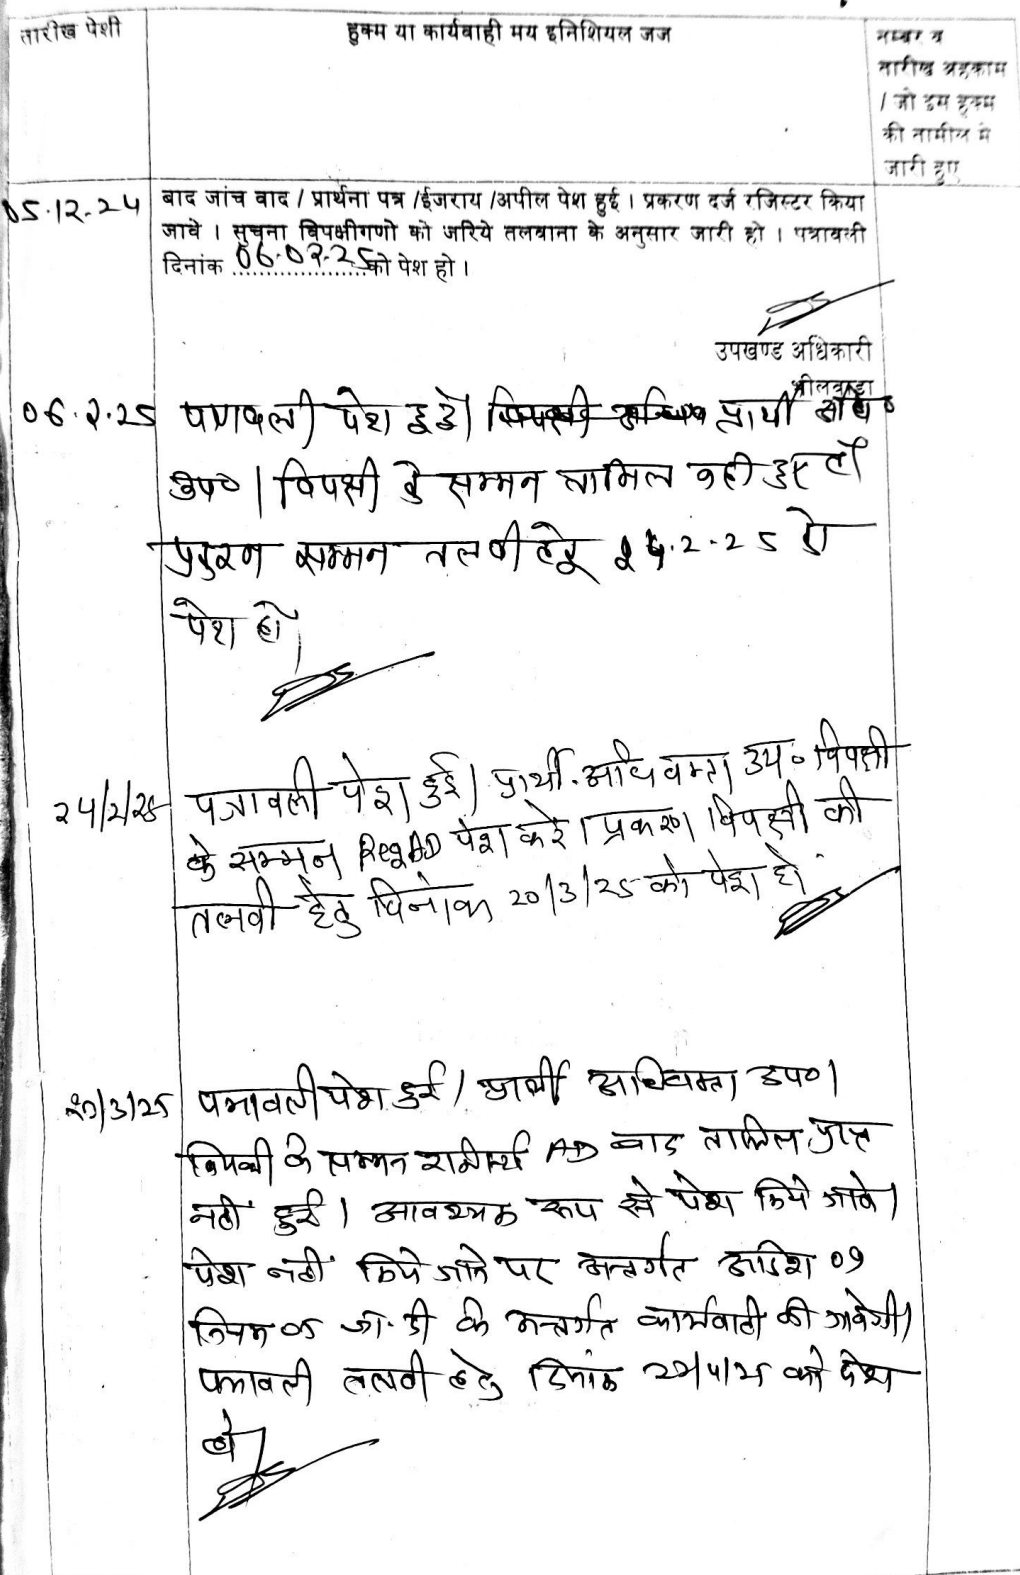 तारीख पेशी
हुक्म या कार्यवाही मय इनिशियल जज
नम्बर व
तारीख अहकाम
/ जो इस हुक्म
की तामील में
जारी हुए
05.12.24
बाद जांच वाद / प्रार्थना पत्र /ईजराय /अपील पेश हुई । प्रकरण दर्ज रजिस्टर किया
जावे । सुचना विपक्षीगणो को जरिये तलवाना के अनुसार जारी हो । पत्रावली
दिनांक 06.02.25 को पेश हो ।
उपखण्ड अधिकारी
भीलवाडा
06.2.25 पत्रावली पेश हुई। प्रार्थी अधि०
उप० | विपक्षी के सम्मन तामिल नही हुए
प्रकरण सम्मन तलवी हेतु 24.2.25 को
पेश हो
24/2/25 पत्रावली पेश हुई। प्रार्थी अधिवक्ता उप० विपक्षी
के सम्मन Reg AD पेश करे। प्रकरण विपक्षी की
तलवी हेतु दिनांक 20/3/25 को पेश हो
20/3/25 पत्रावली पेश हुई। प्रार्थी अधिवक्ता उप०।
विपक्षी के सम्मन AD बाद तामिल प्राप्त
नहीं हुई। आवश्यक रूप से पेश किये जावे।
पेश नहीं किये जाने पर अन्तर्गत आदेश 09
नियम 05 जा.दी के अन्तर्गत कार्यवाही की जावेगी।
पत्रावली तलवी हेतु दिनांक 22/4/25 को पेश
हो